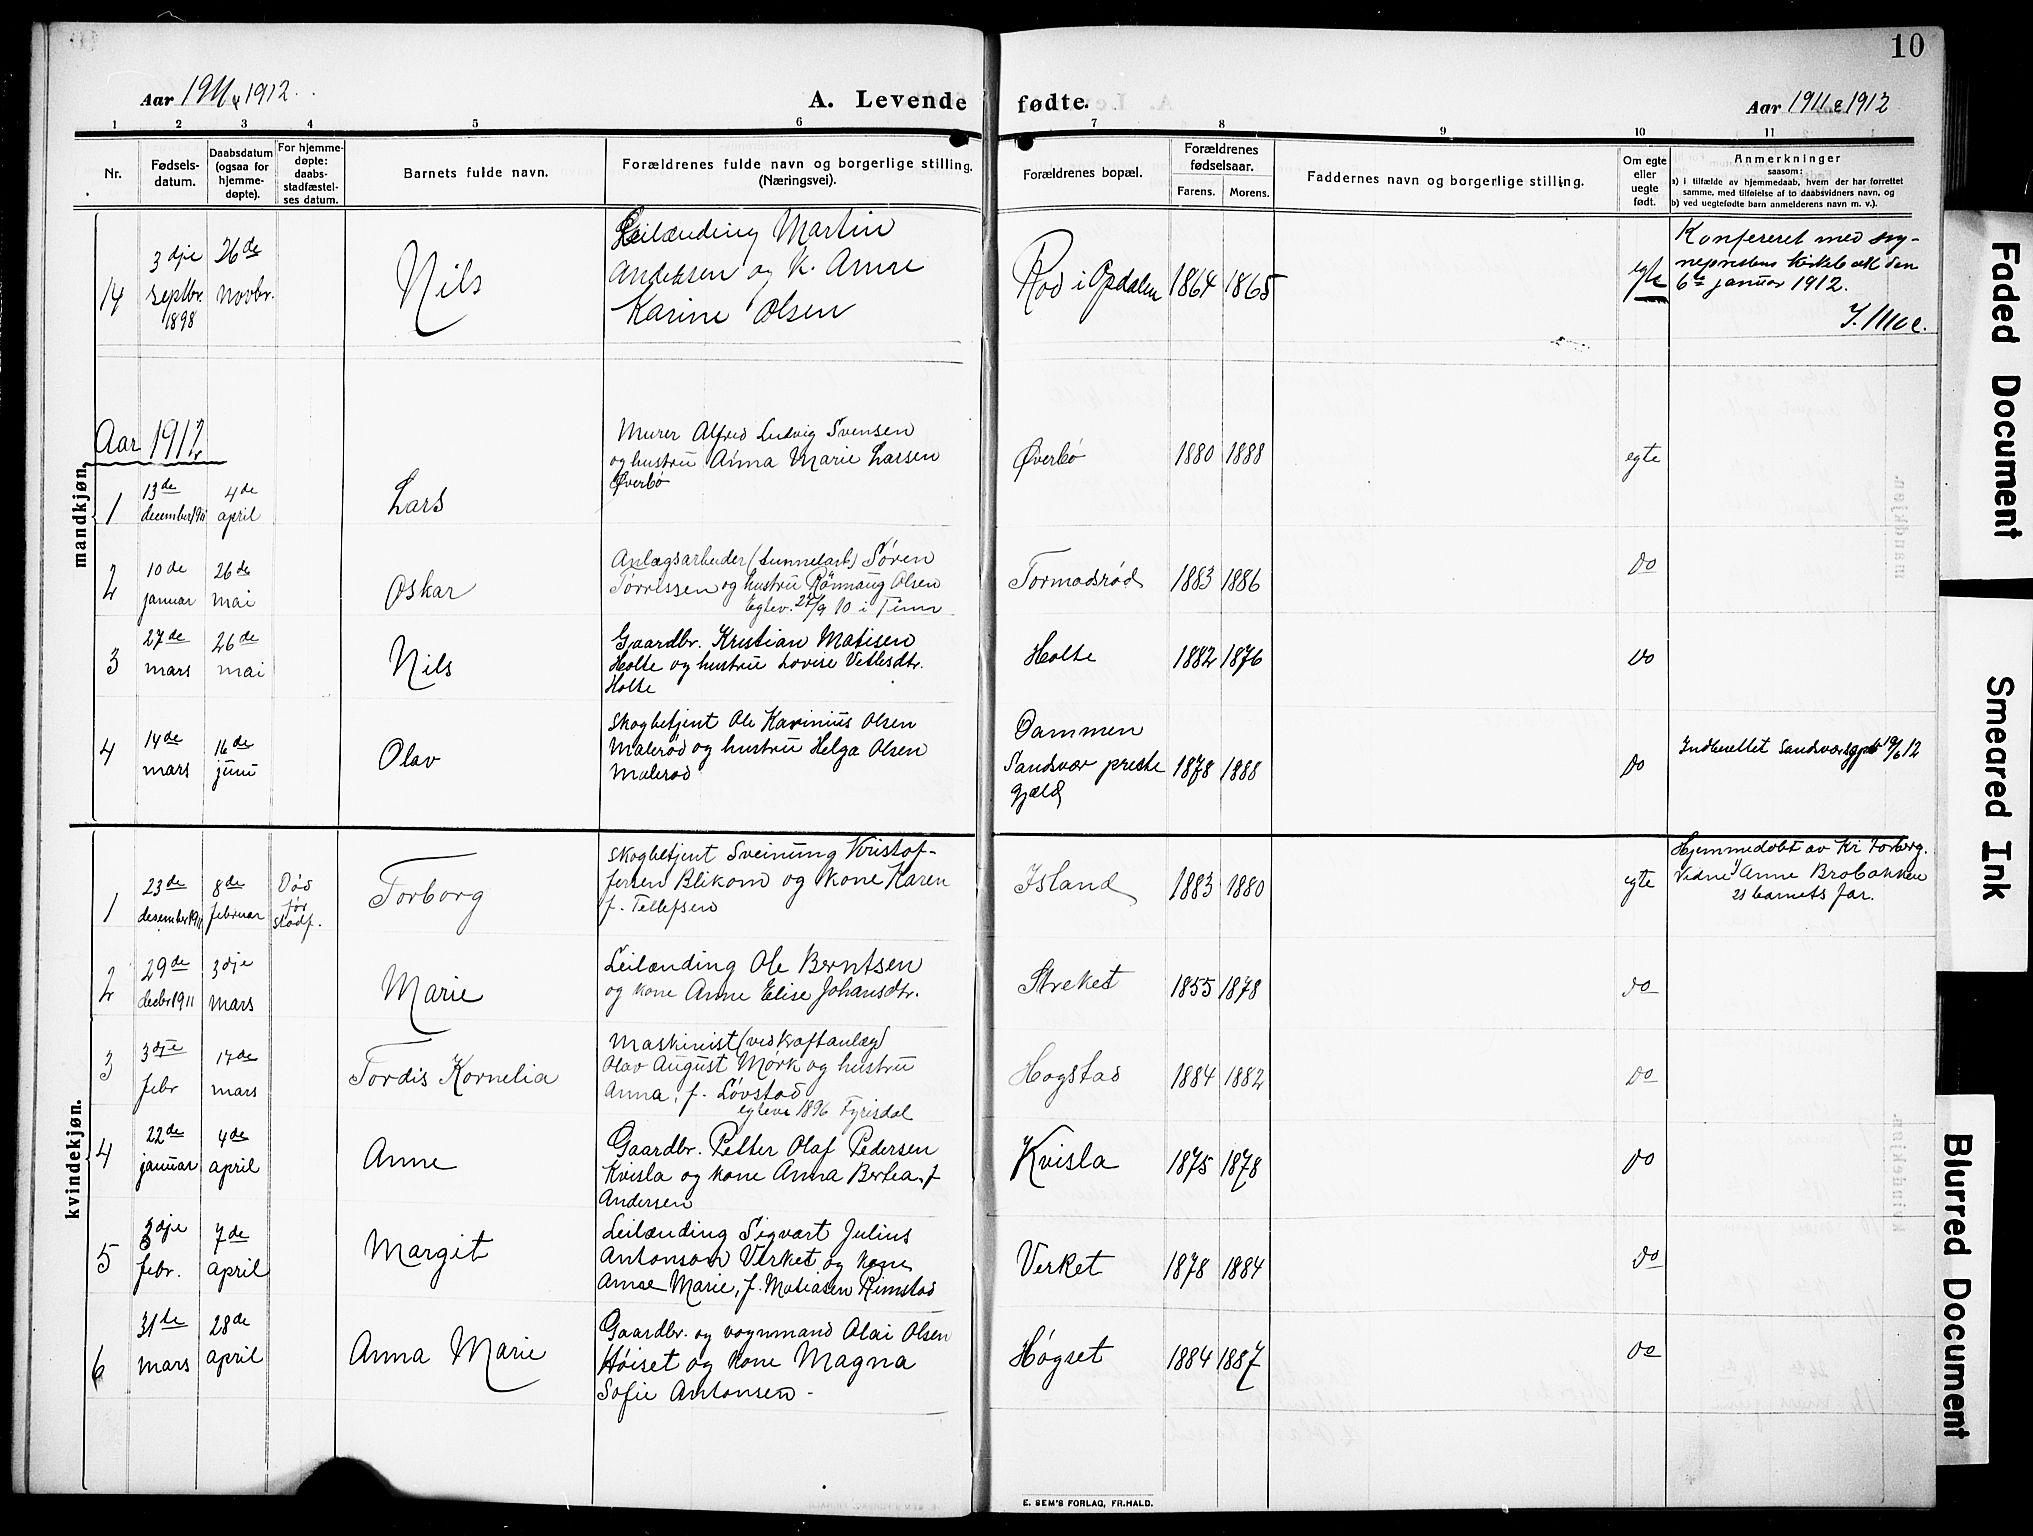 10
Aar 1911 & 1912.
A. Levende fødte.
Aar 1911 & 1912
1 2 3 4 5 6 7 8 9 10 11
Nr.
Fødsels-
datum.
Daabsdatum
(ogsaa for
hjemme-
døpte).
For hjemme-
døpte:
daabs-
stadfæstel-
ses datum.
Barnets fulde navn.
Forældrenes fulde navn og borgerlige stilling.
(Næringsvei).
Forældrenes bopæl.
Forældrenes
fødselsaar.
Farens. Morens.
Faddernes navn og borgerlige stilling.
Om egte
eller
uegte
født.
Anmerkninger
saasom:
a) i tilfælde av hjemmedaab, hvem der har forrettet
samme, med tilføielse af to daabsvidners navn, og
b) ved uegtefødte barn anmelderens navn m. v.).
14
3dje
septbr.
1898
26de
novbr.
Nils
Leilænding Martin
Andersen og k. Anne
Karine Olsen
Rod i Opdalen
1864 1865
egte
Konfereret med sog-
neprestens kirkebok den
6te januar 1912.
J. Moe.
Aar 1912
mandkjøn.
1
13de
december 1911
4de
april
Lars
Murer Alfred Ludvig Svensen
og hustru Anna Marie Larsen
Øverbø
Øverbø
1880 1888
egte
2
10de
januar
26de
mai
Oskar
Anlægsarbeider (tunnelarb) Søren
Tørrissen og hustru Rönnaug Olsen
Egtev. 24/9 10 i Tinn
Tormodsrød
1883 1886
do
3
27de
mars
26de
mai
Nils
Gaardbr. Kristian Matisen
Holte og hustru Lovise Vetlesdtr.
Holte
Holte
1882 1876
do
4
14de
mars
16de
juni
Olav
Skogbetjent Ole Karinius Olsen
Malerød og hustru Helga Olsen
Malerød
Dammen
Sandsvær preste
gjæld
1878 1888
do
Indberettet Sandsvær sgpr 19/6 12
kvindekjøn.
1
23de
desember 1911
8de
februar
Død
før
stadf.
Torborg
Skogbetjent Sveinung Kristof-
fersen Blikom og kone Karen
f. Tellefsen
Island
1883 1880
egte
Hjemmedøbt av Kr Torberg.
Vidne 1) Anne Brobakken
2) barnets far.
2
29de
decbr 1911
3dje
mars
Marie
Leilænding Ole Berntsen
og kone Anne Elise Johansdtr.
Streket
1855 1878
do
3
3dje
febr
17de
mars
Tordis Kornelia
Maskinist (ved kraftanlæg)
Olav August Mørk og hustru
Anna, f. Løvstad
egtevi 18 9/6 Fyrisdal
Hogstad
1884 1882
do
4
22de
januar
4de
april
Anne
Gaardbr. Petter Olaf Pedersen
Kvisla og kone Anna Bertea f
Andersen
Kvisla
1875 1878
do
5
3dje
febr.
7de
april
Margit
Leilænding Sigvart Julius
Antonson Verket og kone
Anne Marie, f. Matiasen Rimstad
Verket
1878 1884
do
6
31te
mars
28de
april
Anna Marie
Gaardbr. og vognmand Olai Olsen
Høiset og kone Magna
Sofie Antonsen -
Høgset
1884 1887
do
E. SEM'S FORLAG, FR.HALD.
Faded Document
Smeared Ink
Blurred Document